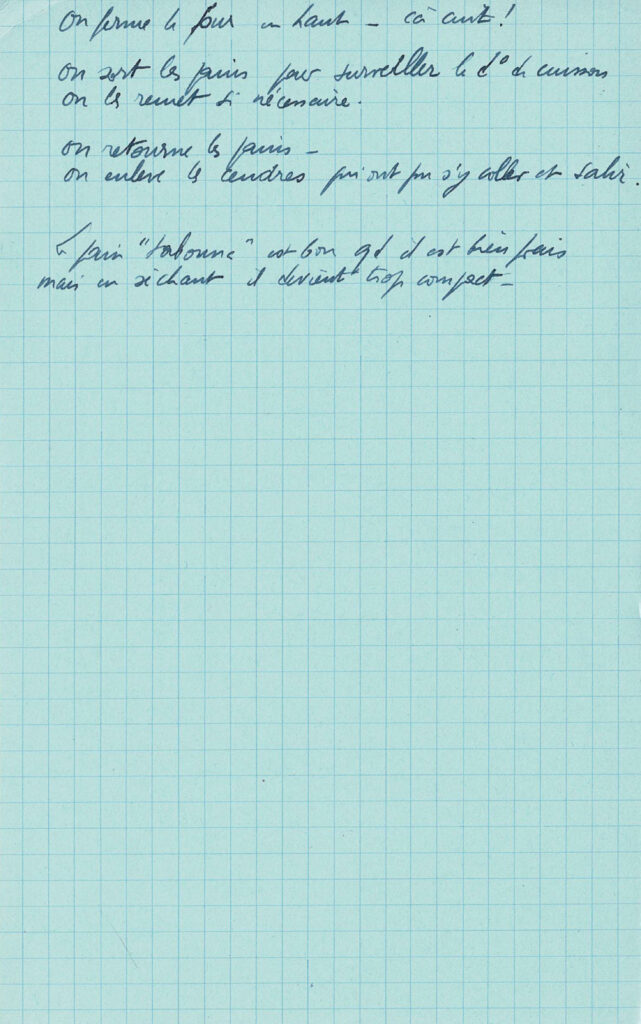 On ferme le four en haut – çà cuit !
On sort les pains pour surveiller le d° de cuisson
On les remet si nécessaire.
On retourne les pains –
On enlève les cendres qui ont pu s'y coller et salir.
Le pain "tabouna" est bon qd il est bien frais
mais en séchant il devient trop compact –